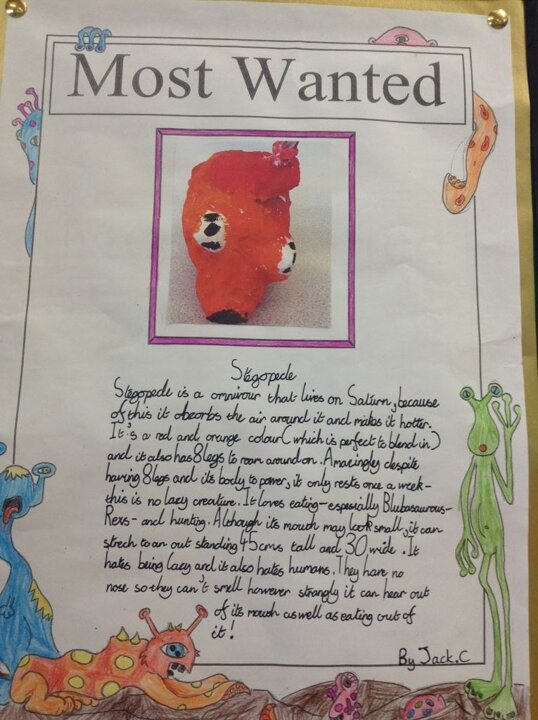 Most Wanted
Stegopede
Stegopede is a omnivour that lives on Saturn, because
of this it absorbs the air around it and makes it hotter.
It's a red and orange colour (which is perfect to blend in)
and it also has 8 legs to roam around on. Amazingly despite
having 8 legs and its body to power, it only rests once a week-
this is no lazy creature. It loves eating - especially Blubasaurous-
Rexs - and hunting. Although its mouth may look small, it can
strech to an out standing 45cms tall and 30 wide. It
hates being lazy and it also hates humans. They have no
nose so they can't smell however strangly it can hear out
of its mouth as well as eating out of
it!
By Jack.C